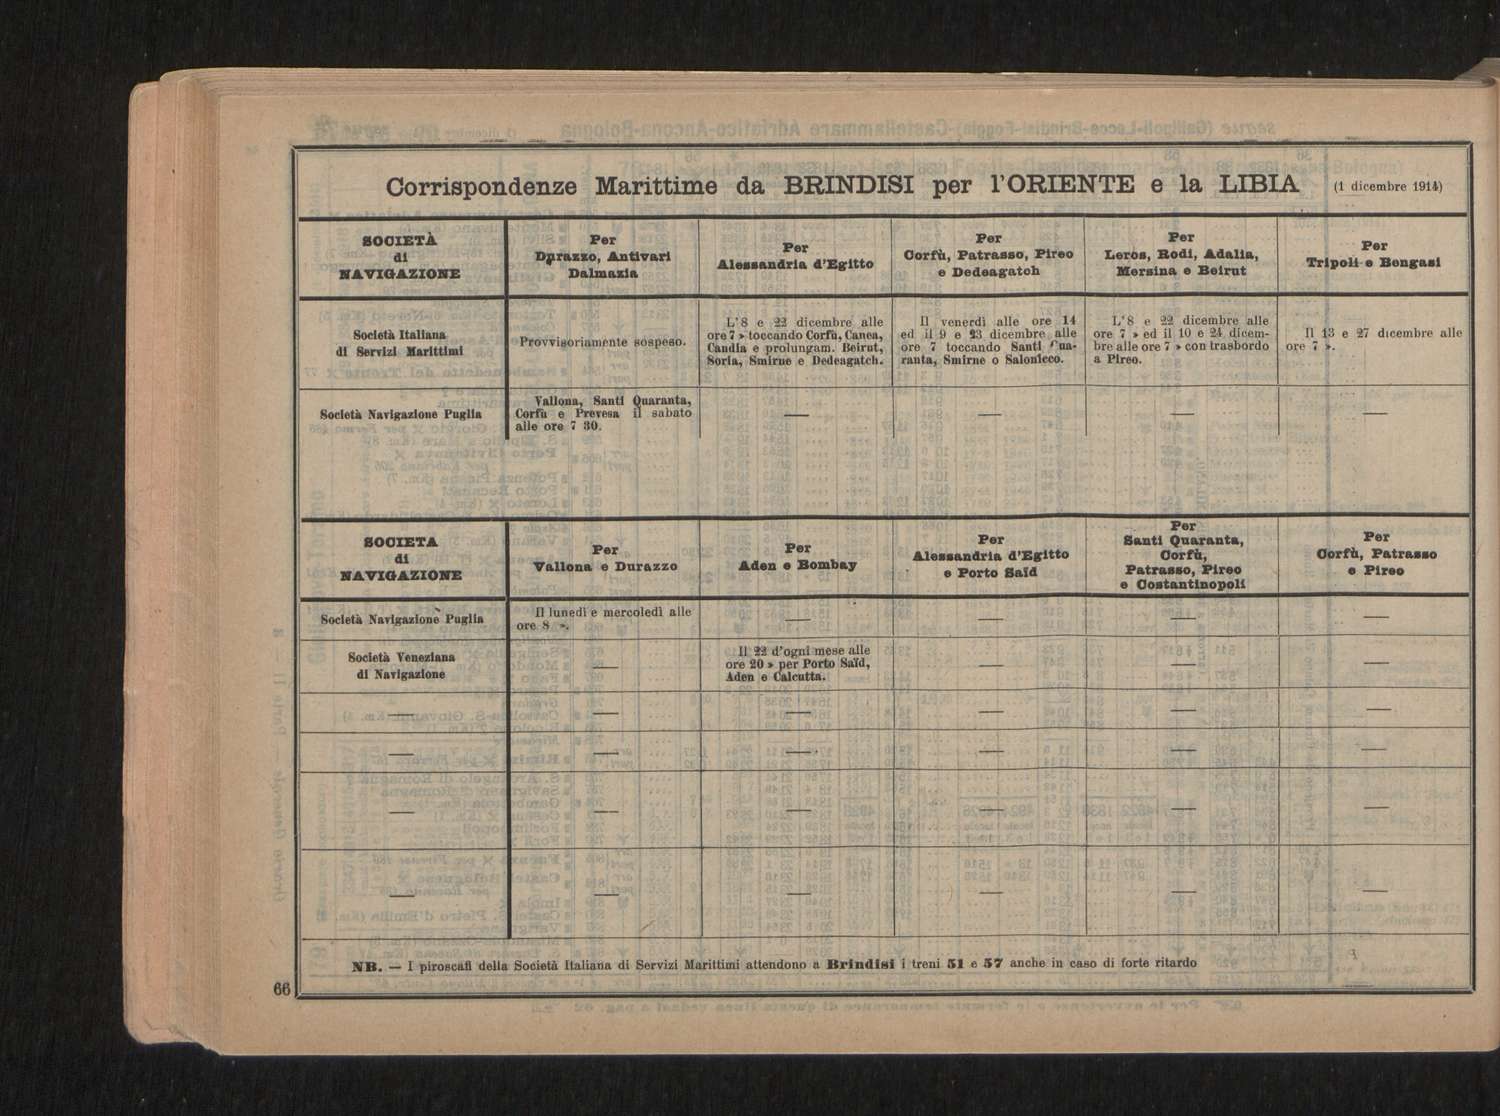 Corrispondenze Marittime da BRINDISI per l'ORIENTE e la LIBIA (1 dicembre 1914)
SOCIETÀ
di
NAVIGAZIONE
Per
Durazzo, Antivari
Dalmazia
Per
Alessandria d'Egitto
Per
Corfù, Patrasso, Pireo
e Dedeagatch
Per
Leros, Rodi, Adalia,
Mersina e Beirut
Per
Tripoli e Bengasi
Società Italiana
di Servizi Marittimi
Provvisoriamente sospeso.
L'8 e 22 dicembre alle
ore 7 » toccando Corfù, Canea,
Candia e prolungam. Beirut,
Soria, Smirne e Dedeagatch.
Il venerdì alle ore 14
ed il 9 e 23 dicembre alle
ore 7 toccando Santi Qua-
ranta, Smirne o Salonicco.
L'8 e 22 dicembre alle
ore 7 » ed il 10 e 24 dicem-
bre alle ore 7 » con trasbordo
a Pireo.
Il 13 e 27 dicembre alle
ore 7 ».
Società Navigazione Puglia
Vallona, Santi Quaranta,
Corfù e Prevesa il sabato
alle ore 7 30.
—
—
—
—
SOCIETA
di
NAVIGAZIONE
Per
Vallona e Durazzo
Per
Aden e Bombay
Per
Alessandria d'Egitto
e Porto Saïd
Per
Santi Quaranta,
Corfù,
Patrasso, Pireo
e Costantinopoli
Per
Corfù, Patrasso
e Pireo
Società Navigazione Puglia
Il lunedì e mercoledì alle
ore 8 ».
—
—
—
—
Società Veneziana
di Navigazione
—
Il 22 d'ogni mese alle
ore 20 » per Porto Saïd,
Aden e Calcutta.
—
—
—
— — — — — —
— — — — — —
— — — — — —
— — — — — —
NB. — I piroscafi della Società Italiana di Servizi Marittimi attendono a Brindisi i treni 51 e 57 anche in caso di forte ritardo
66